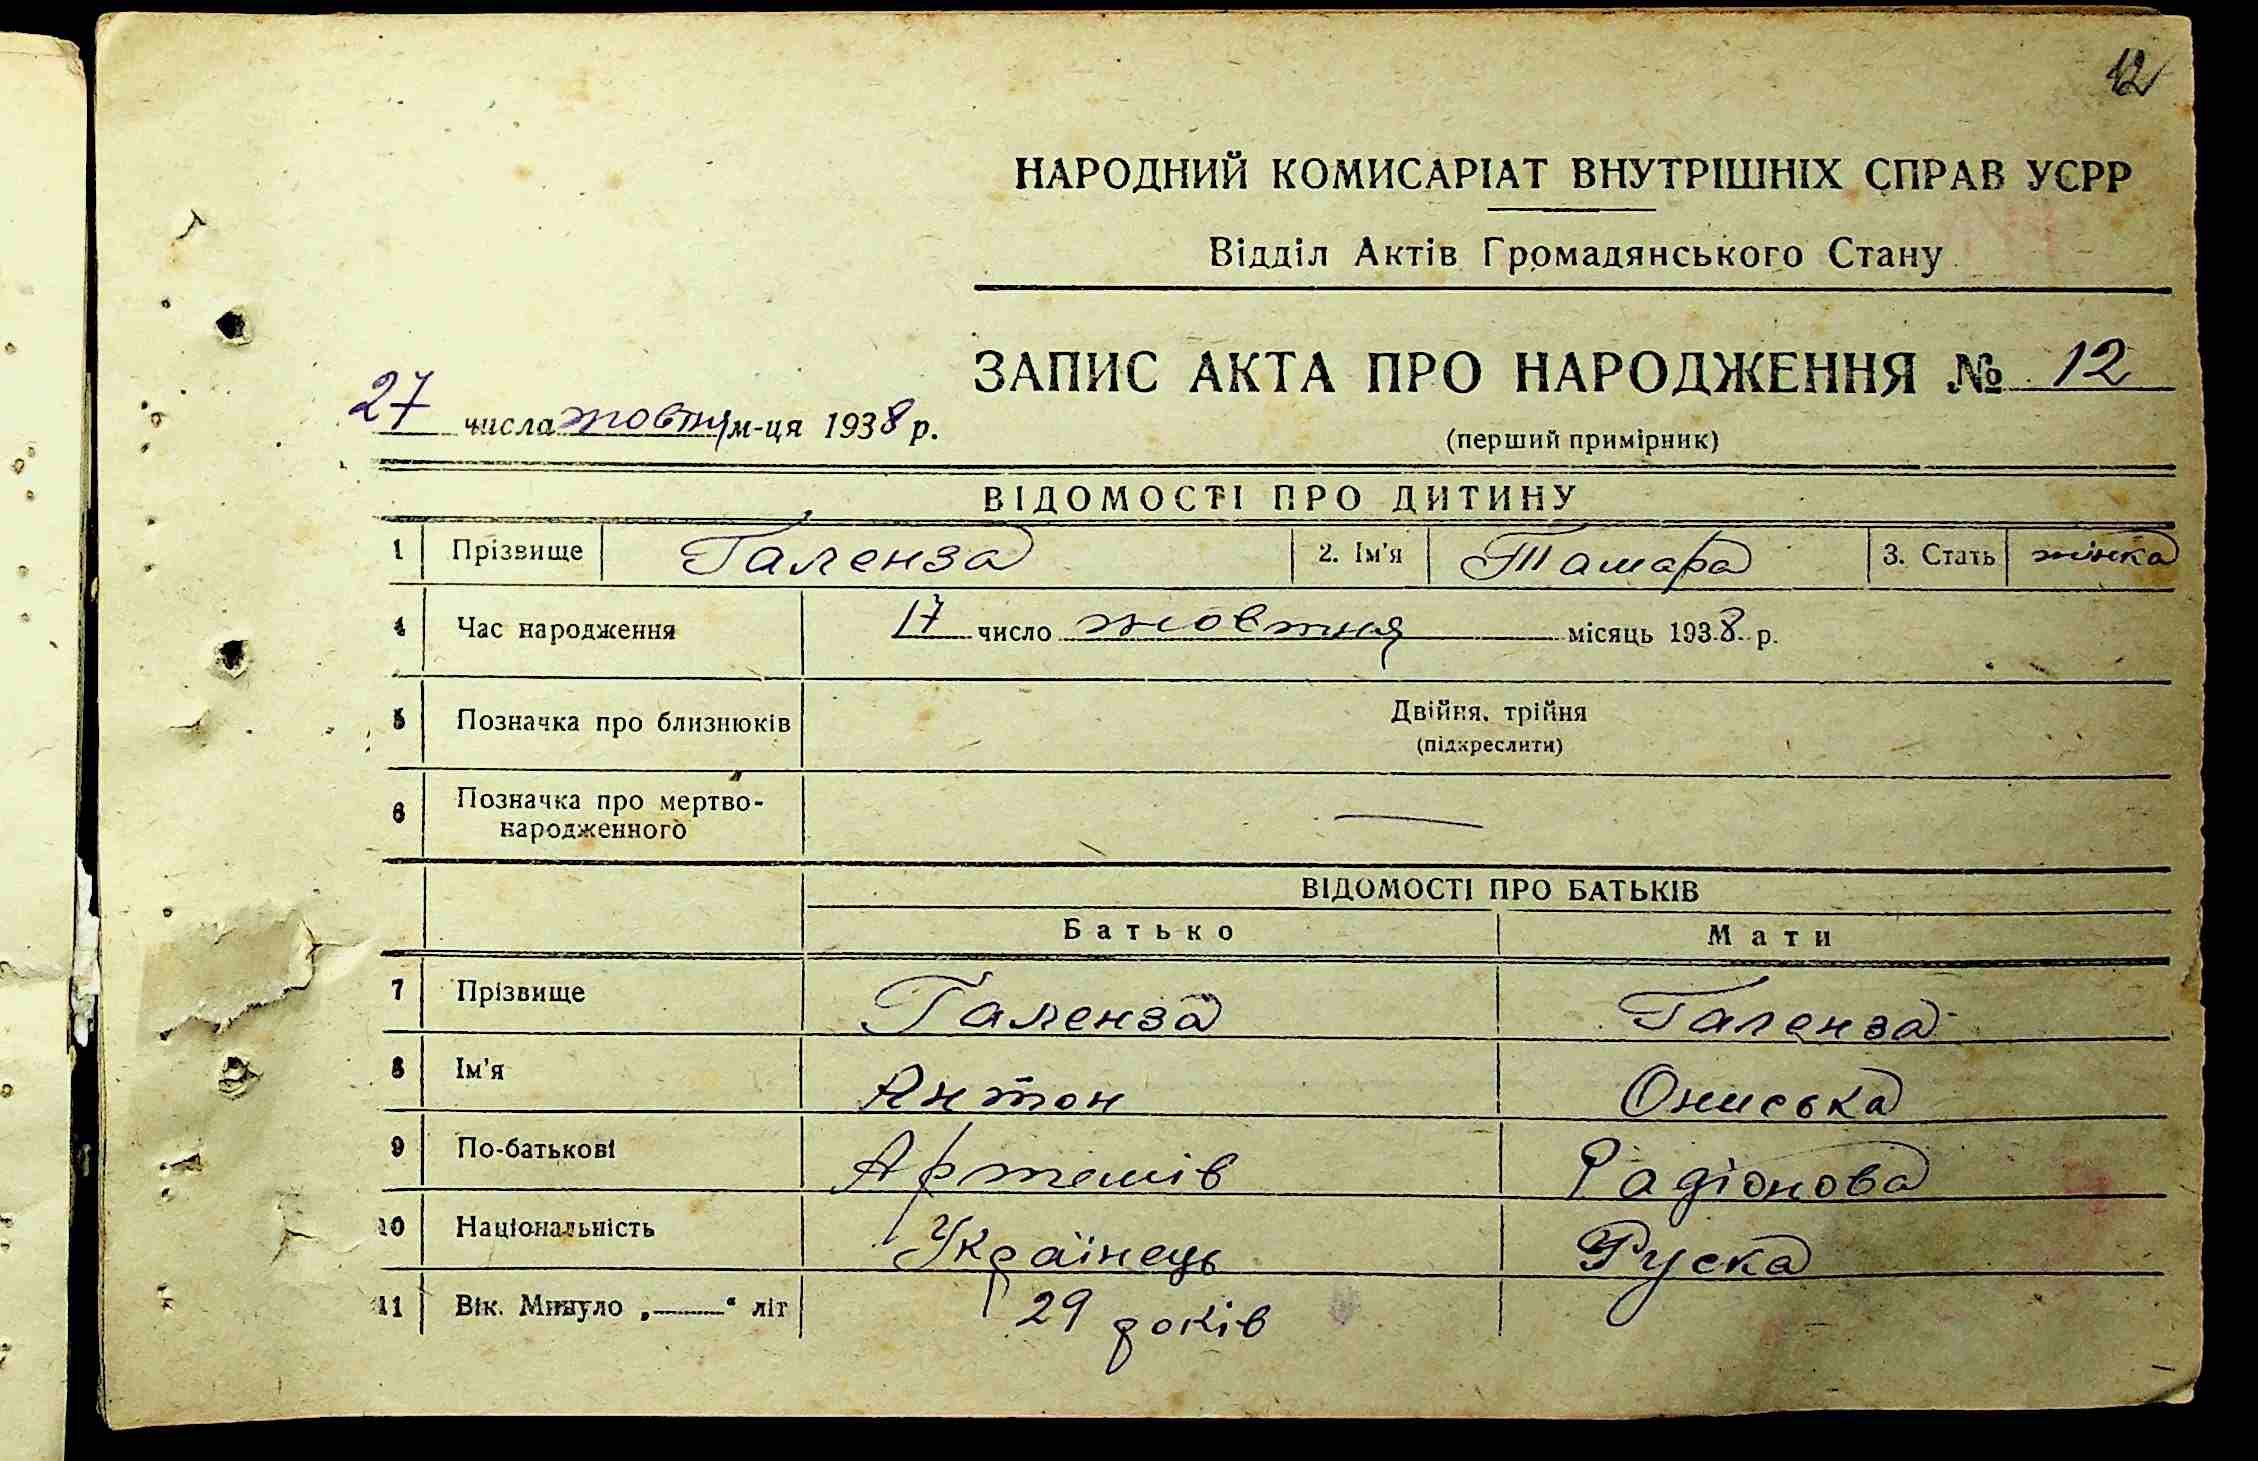 12
НАРОДНИЙ КОМИСАРІАТ ВНУТРІШНІХ СПРАВ УСРР
Відділ Актів Громадянського Стану
ЗАПИС АКТА ПРО НАРОДЖЕННЯ № 12
27 числа жовтня м-ця 1938 р.
(перший примірник)
ВІДОМОСТІ ПРО ДИТИНУ
1 Прізвище Галенза 2. Ім'я Тамара 3. Стать жінка
4 Час народження 17 число жовтня місяць 1938 р.
5 Позначка про близнюків Двійня, трійня
(підкреслити)
6 Позначка про мертво-
народженного —
ВІДОМОСТІ ПРО БАТЬКІВ
Батько Мати
7 Прізвище Галенза Галенза
8 Ім'я Антон Ониська
9 По-батькові Артемів Радіонова
10 Національність Українець Руска
11 Вік. Минуло „——“ літ 29 років